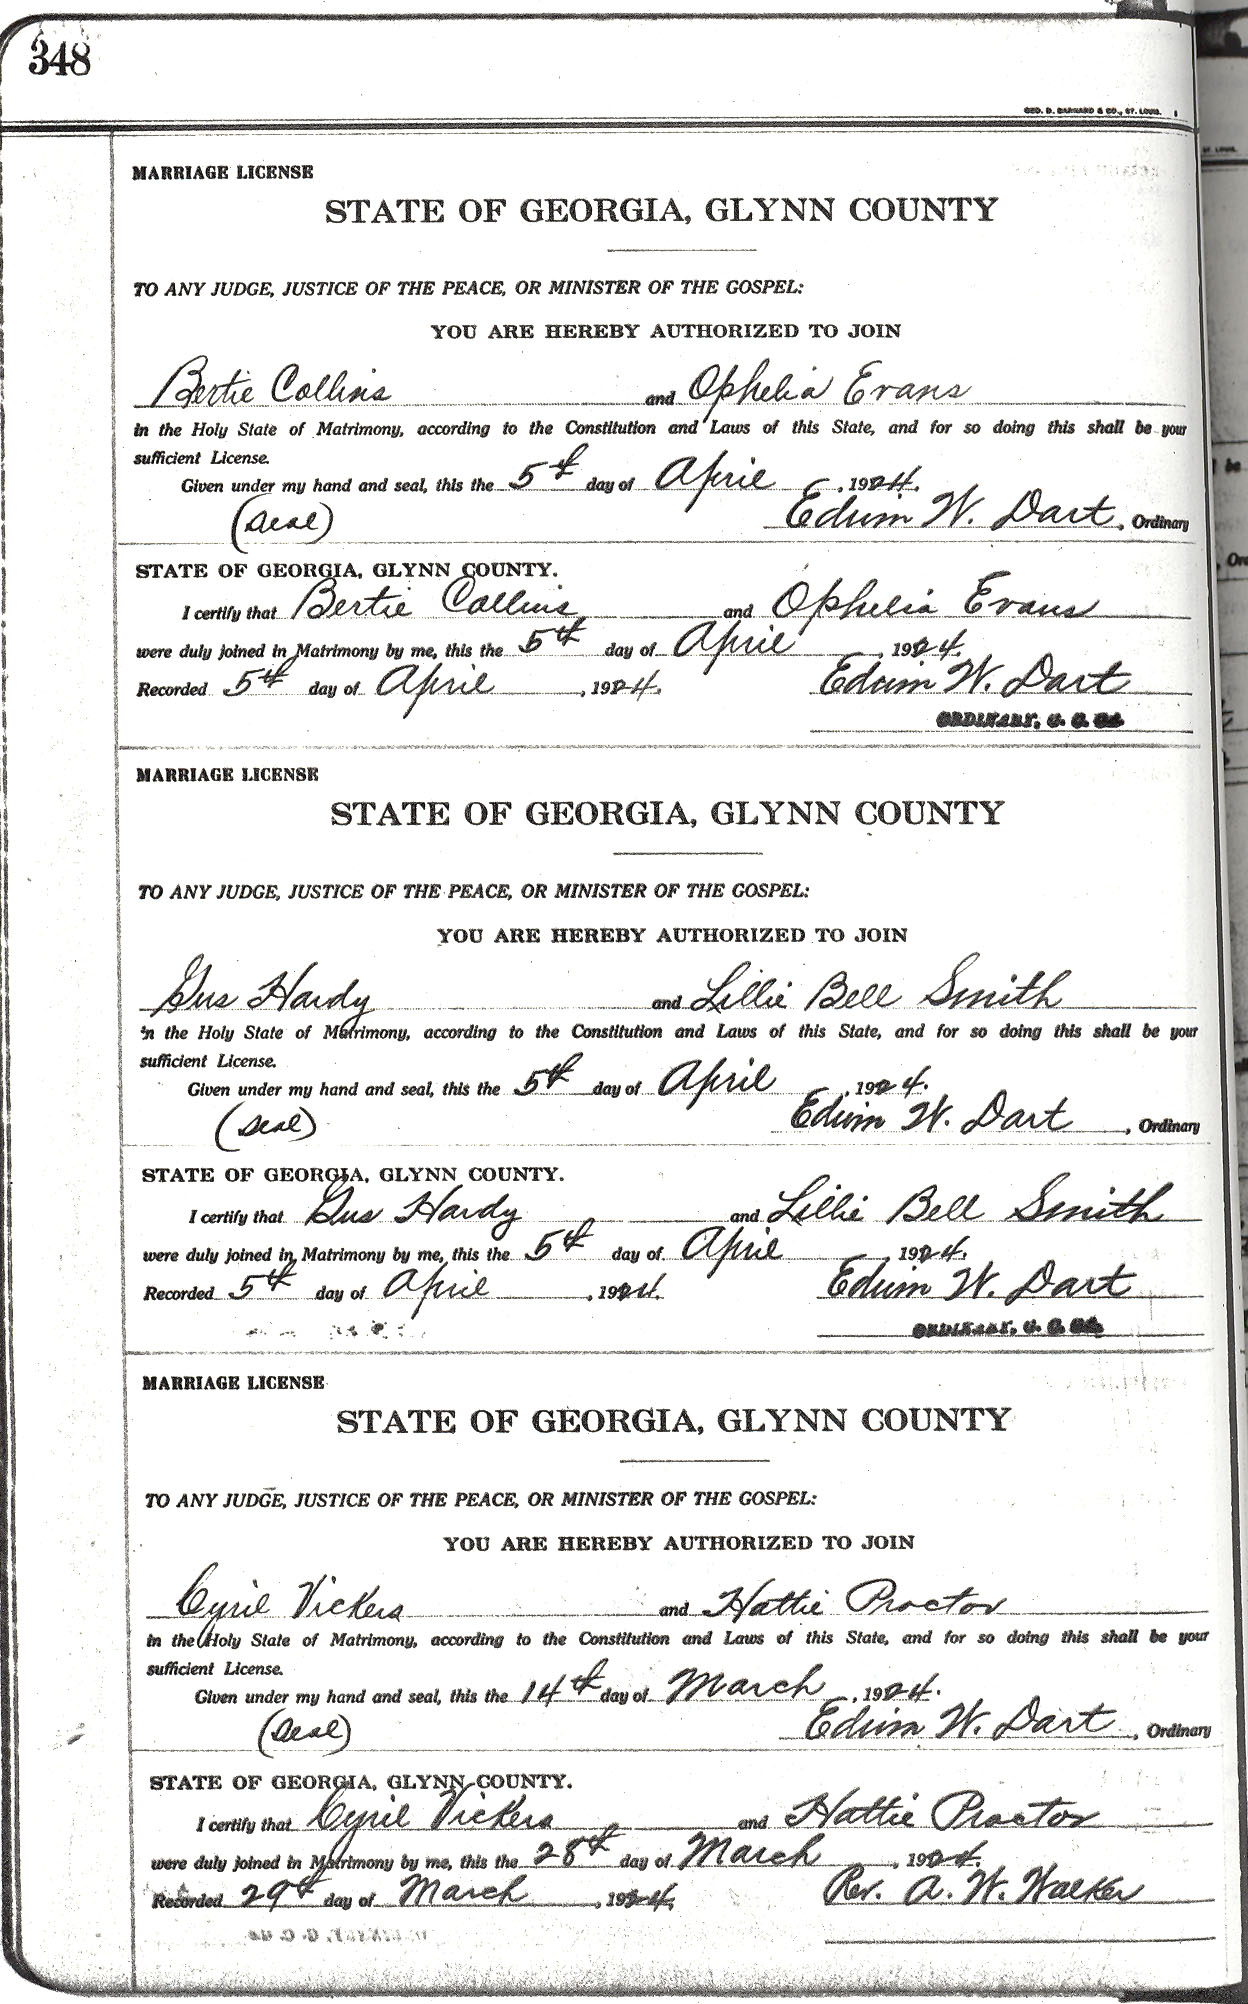 348
GEO. D. BARNARD & CO., ST. LOUIS.
ST. LOUIS.
MARRIAGE LICENSE
STATE OF GEORGIA, GLYNN COUNTY
TO ANY JUDGE, JUSTICE OF THE PEACE, OR MINISTER OF THE GOSPEL:
YOU ARE HEREBY AUTHORIZED TO JOIN
Bertie Collins and Ophelia Evans
in the Holy State of Matrimony, according to the Constitution and Laws of this State, and for so doing this shall be your
sufficient License.
Given under my hand and seal, this the 5th day of April, 1924.
(Seal) Edwin W. Dart, Ordinary
STATE OF GEORGIA, GLYNN COUNTY.
I certify that Bertie Collins and Ophelia Evans
were duly joined in Matrimony by me, this the 5th day of April, 1924.
Recorded 5th day of April, 1924. Edwin W. Dart
ORDINARY, G. C. Ga.
MARRIAGE LICENSE
STATE OF GEORGIA, GLYNN COUNTY
TO ANY JUDGE, JUSTICE OF THE PEACE, OR MINISTER OF THE GOSPEL:
YOU ARE HEREBY AUTHORIZED TO JOIN
Gus Hardy and Lillie Bell Smith
in the Holy State of Matrimony, according to the Constitution and Laws of this State, and for so doing this shall be your
sufficient License.
Given under my hand and seal, this the 5th day of April, 1924.
(Seal) Edwin W. Dart, Ordinary
STATE OF GEORGIA, GLYNN COUNTY.
I certify that Gus Hardy and Lillie Bell Smith
were duly joined in Matrimony by me, this the 5th day of April, 1924.
Recorded 5th day of April, 1924. Edwin W. Dart
ORDINARY, G. C. Ga.
MARRIAGE LICENSE
STATE OF GEORGIA, GLYNN COUNTY
TO ANY JUDGE, JUSTICE OF THE PEACE, OR MINISTER OF THE GOSPEL:
YOU ARE HEREBY AUTHORIZED TO JOIN
Cyril Vickers and Hattie Proctor
in the Holy State of Matrimony, according to the Constitution and Laws of this State, and for so doing this shall be your
sufficient License.
Given under my hand and seal, this the 14th day of March, 1924.
(Seal) Edwin W. Dart, Ordinary
STATE OF GEORGIA, GLYNN COUNTY.
I certify that Cyril Vickers and Hattie Proctor
were duly joined in Matrimony by me, this the 28th day of March, 1924.
Recorded 29th day of March, 1924, Rev. A. W. Walker